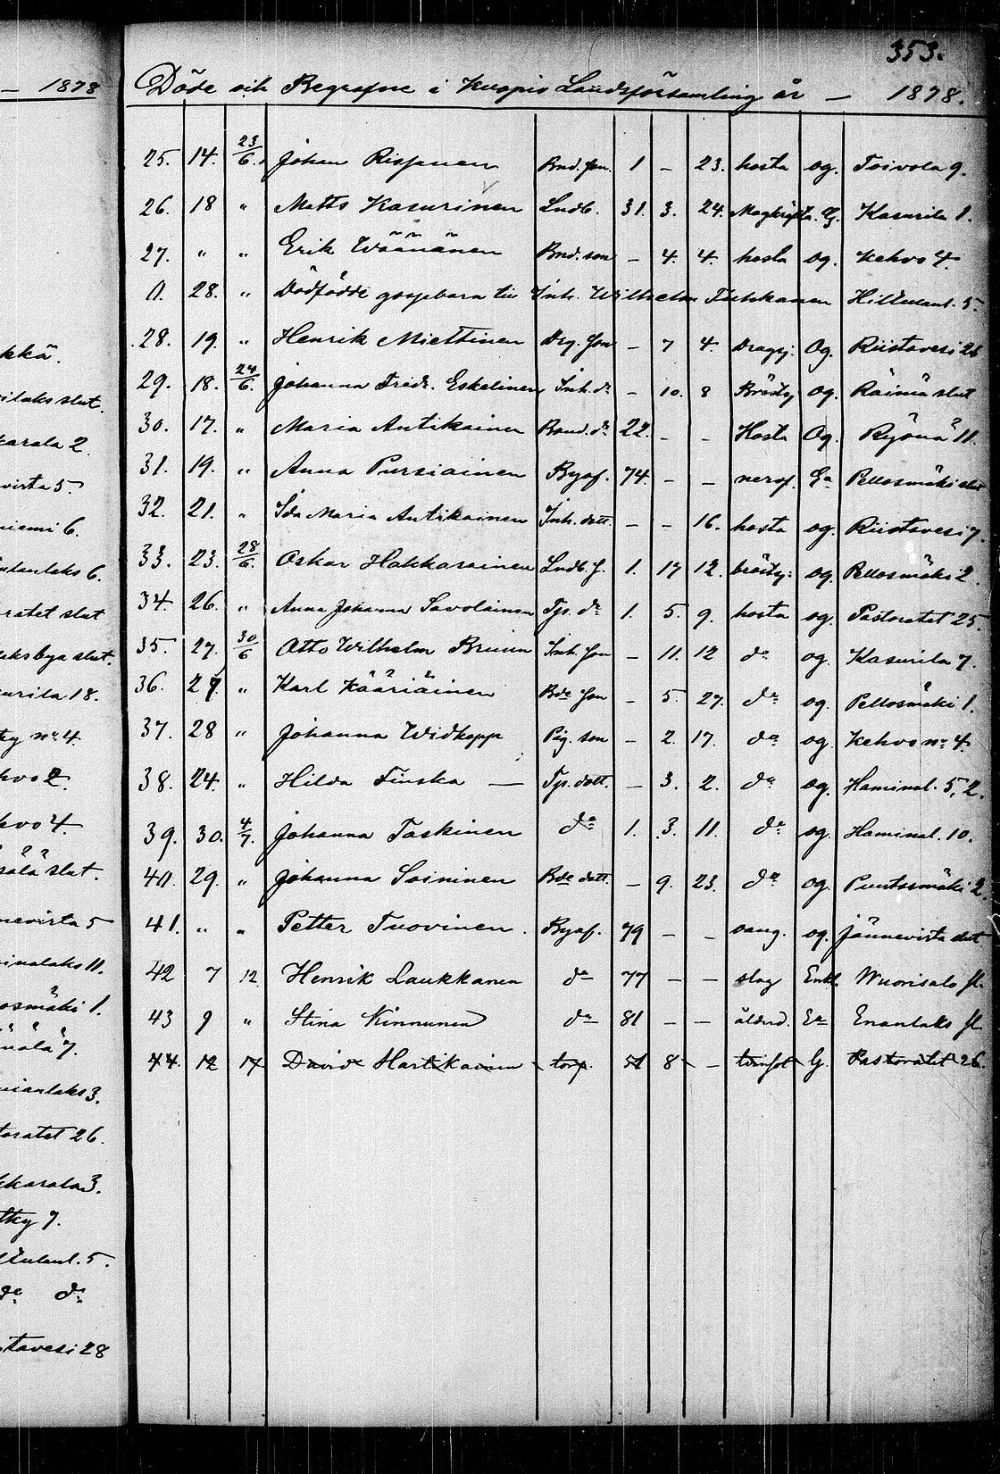 353.
Döde och Begrafne i Kuopio Landsförsamling år — 1878.
25. 14. 23/6. Johan Rissanen Bnd. son 1 – 23. hosta og. Toivola 9.
26. 18 " Matts Kasurinen Lndb. 31. 3. 24. Magkräfta. G. Kasurila 1.
27. " " Erik Wäänänen Bnd. son – 4. 4. hosta og. Kehvo 4.
0. 28. " Dödfödde gossebarn till Inh. Wilhelm Tuhkanen Hiltulanl. 5.
28. 19. " Henrik Miettinen Drg. son – 7 4. Dragsj. Og. Riistavesi 28
29. 18. 24/6. Johanna Fredr. Eskelinen Inh. dr – 10. 8 Bröstsj og. Räimä slut
30. 17. " Maria Antikainen Bond. dr 22. – – Hosta Og. Ryönä 11.
31. 19. " Anna Pursiainen Byaf. 74. – – nervf. Ga Pellosmäki slut
32. 21. " Ida Maria Antikainen Inh. dott. – – 16. hosta og. Riistavesi 7.
33. 23. 28/6. Oskar Hakkarainen Lndb. s. 1. 17 12. bröstsj. og. Pellosmäki 2.
34. 26. " Anna Johanna Savolainen Tjs. dr 1. 5. 9. hosta og. Pastoratet 25.
35. 27. 30/6 Otto Wilhelm Bruun Inh. son – 11. 12 do og. Kasurila 7.
36. 27. " Karl Kääriäinen Bde son – 5. 27. do og. Pellosmäki 1.
37. 28 " Johanna Widkopp Pig. son – 2. 17. do og Kehvo no 4.
38. 24. " Hilda Finska — Tjs. dott. – 3. 2. do og. Haminal. 5, 2.
39. 30. 4/7. Johanna Taskinen do 1. 3. 11. do og Haminal. 10.
40. 29. " Johanna Soininen Bde dott. – 9. 23. do og Puutosmäki 2.
41. " " Petter Tuovinen. Byaf. 79 – – vang. og. Jännevirta slut
42 7 12 Henrik Laukkanen do 77 – – slag Enkl. Wuorisalo sl.
43 9 " Stina Kinnunen do 81 – – ålderd. Ea Enanlaks sl
44. 12 17 David Hartikainen torp. 51 8 – tvinsot G. Pastoratet 26.
— 1878
kkä.
ilaks slut.
karala 2.
virta 5.
niemi 6.
anlaks 6.
ratet slut
laks bya slut.
urila 18.
ky no 4.
hvo 2.
hvo 4.
sälä slut.
nevirta 5
inalaks 11.
osmäki 1.
nälä 7.
nianlaks 3.
toratet 26.
kkarala 3.
tky 7.
ltulanl. 5.
do do
stavesi 28